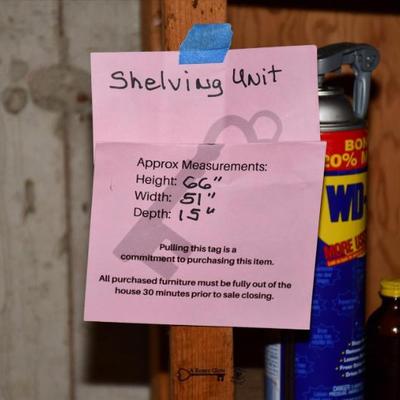 Shelving Unit
Approx Measurements:
Height: 66"
Width: 51"
Depth: 15"
Pulling this tag is a
commitment to purchasing this item.
All purchased furniture must be fully out of the
house 30 minutes prior to sale closing.
BON
20% M
WD-
MORE USE